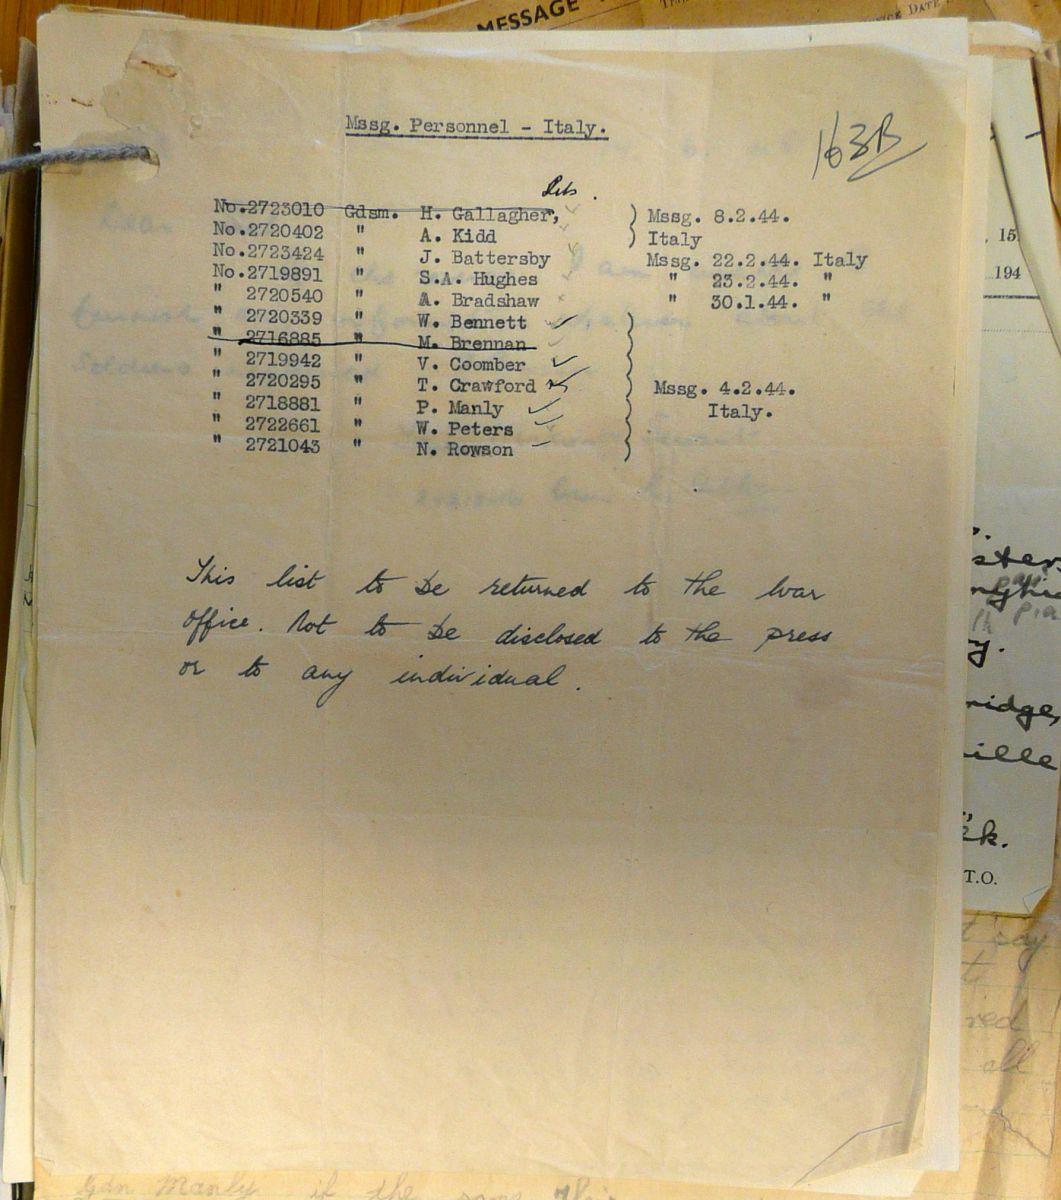 MESSAGE
Mssg. Personnel - Italy.
163B
No.2723010 Gdsm. H. Gallagher, ) Mssg. 8.2.44.
No.2720402 " A. Kidd ) Italy
No.2723424 " J. Battersby Mssg. 22.2.44. Italy
No.2719891 " S.A. Hughes " 23.2.44. "
" 2720540 " A. Bradshaw " 30.1.44. "
" 2720339 " W. Bennett ✓ )
" 2716885 " M. Brennan )
" 2719942 " V. Coomber ✓ )
" 2720295 " T. Crawford ) Mssg. 4.2.44.
" 2718881 " P. Manly ✓ ) Italy.
" 2722661 " W. Peters ✓ )
" 2721043 " N. Rowson )
This list to be returned to the War
Office. Not to be disclosed to the press
or to any individual.
, 15
194
ridge,
ille
T.O.
t say
red
all
Gdn Manly if the same